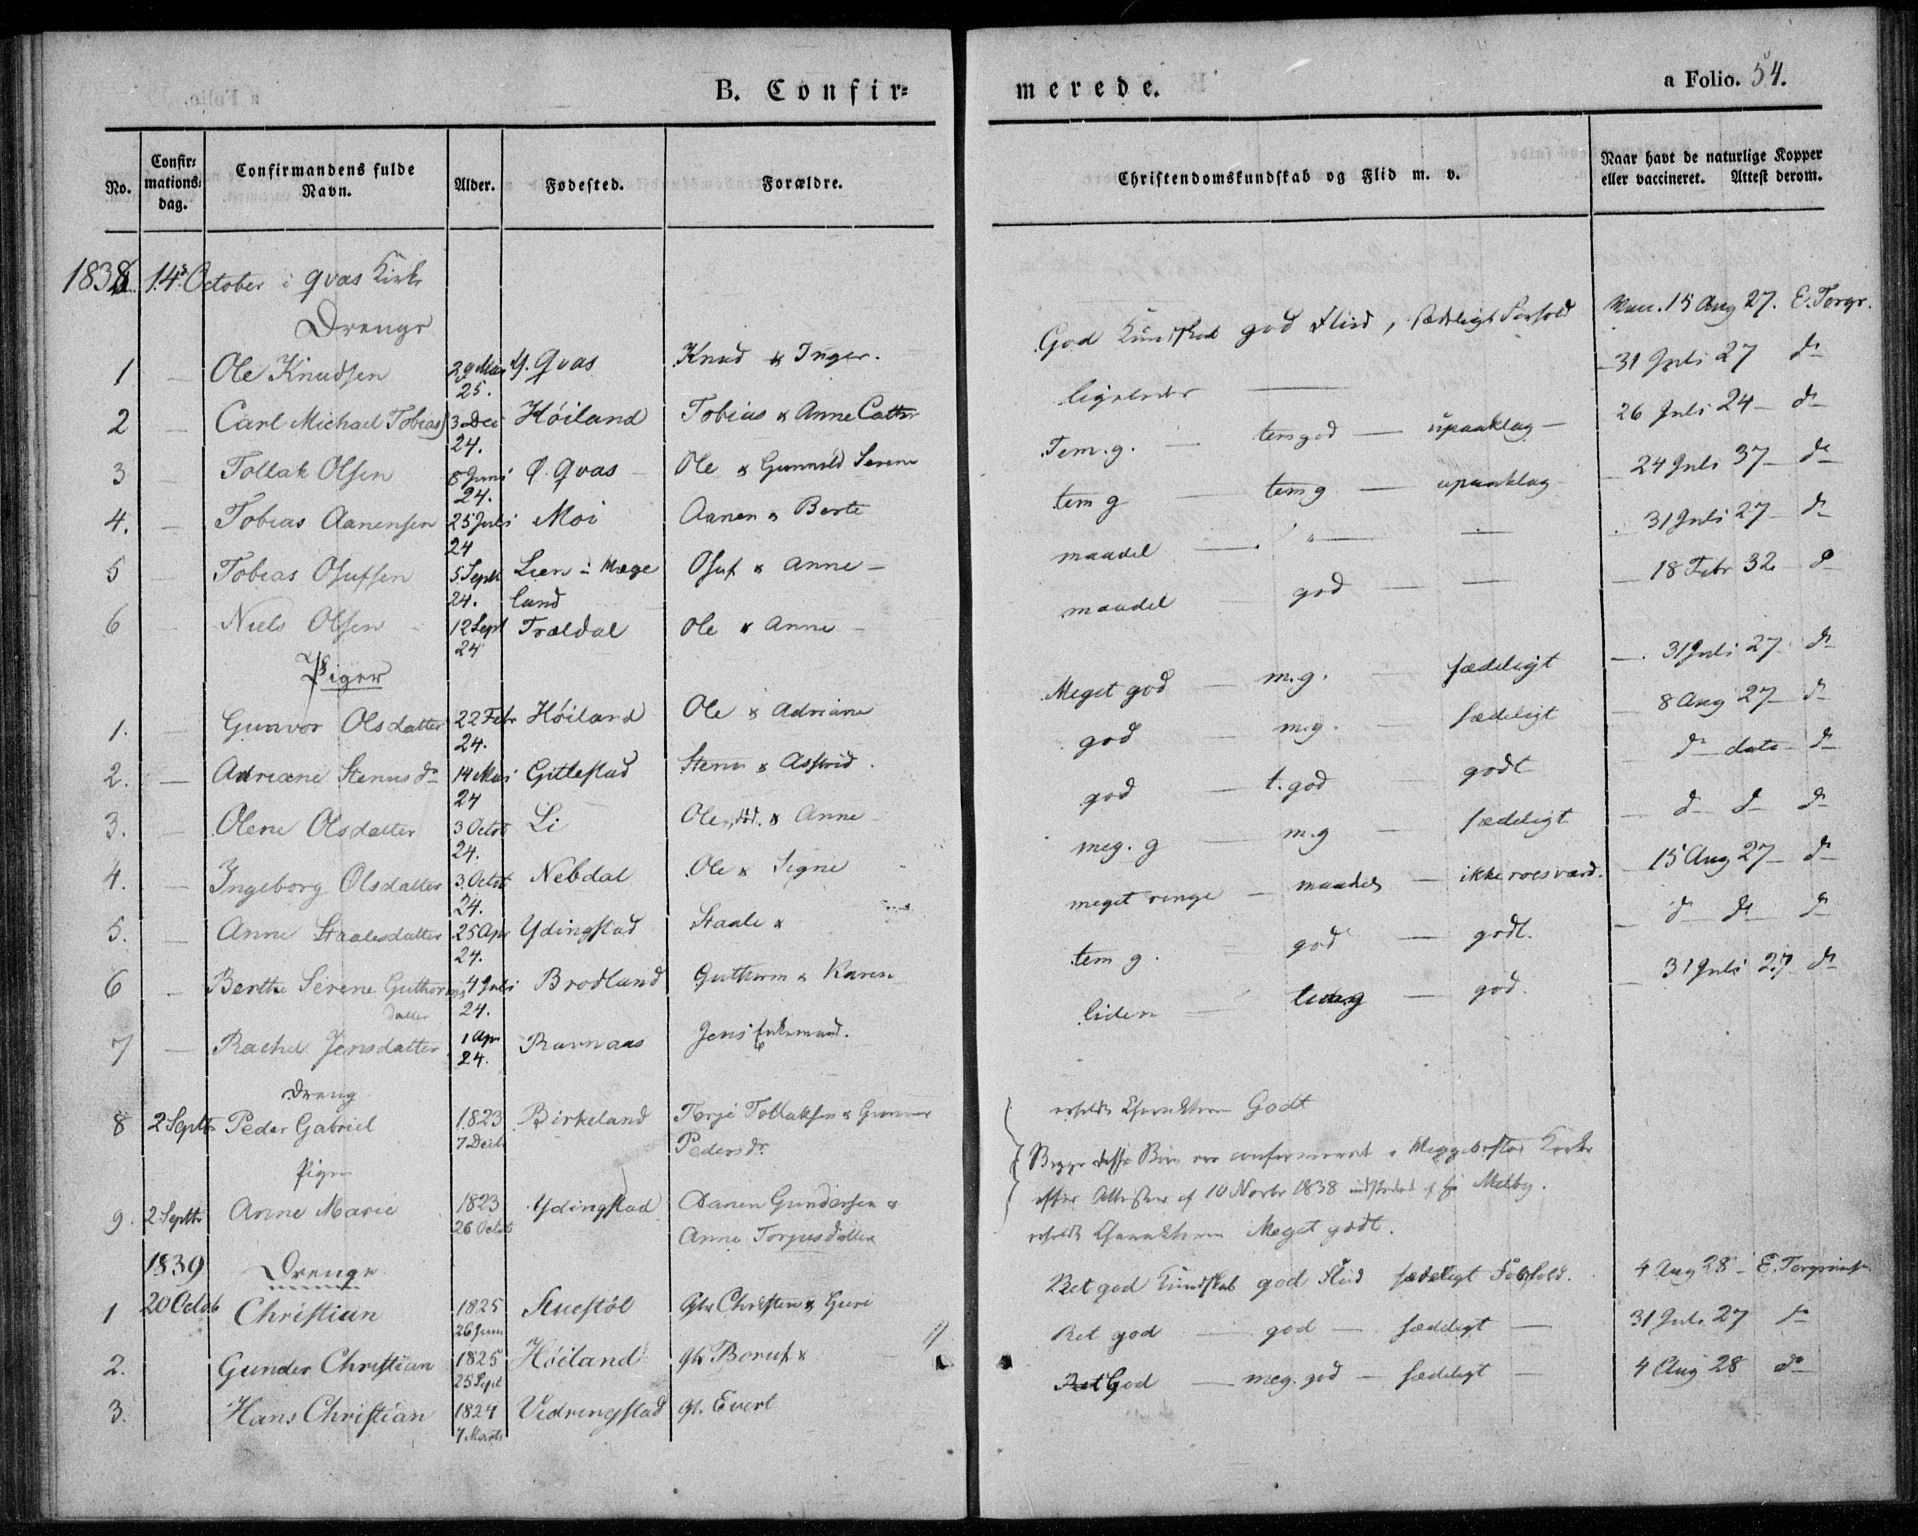 B. Confir=
merede.
a Folio. 54.
No. Confir=mations=dag. Confirmandens fulde Navn. Alder. Fødested. Forældre. Christendomskundskab og Flid m. v. Naar havt de naturlige Kopper eller vaccineret. Attest derom.
1838 14 October i Qvas Kirke
Drenge
1 — Ole Knudsen 29 Mai 25. Y. Qvas Knud & Inger. God Kundskab god Fliid, sædeligt Forhold Vacc. 15 Aug 27. E. Torgr.
2 — Carl Michael Tobias 3 Dec 24. Høiland Tobias & Anne Cathr ligeledes — 31 Juli 27 do
3 — Tollak Olsen 8 Juni 24. Ø. Qvas Ole & Gunnild Serene Tem. g. — tem god — upaaklag — 26 Juli 24 — do
4. — Tobias Aanensen 25 Juli 24 Moi Aanen & Berte tem g — tem g — upaaklag — 24 Juli 37 — do
5 — Tobias Osufsen 5 Septb 24. Lien i Mægeland Osuf & Anne — maadel — " — — 31 Juli 27 — do
6 — Niels Olsen 12 Sept 24 Trældal Ole & Anne — maadel — god — — 18 Febr 32 do
Piger
1. — Gunvor Olsdatter 22 Febr 24. Høiland Ole & Adriane Meget god — m.g. — sædeligt — 31 Juli 27 do
2. — Adriane Stenus dr 14 Mai 24 Gitlestad Stenu & Assrid. god — m.g. — sædeligt — 8 Aug 27 — do
3. — Olene Olsdatter 3 Octob 24. Li Ole, död. & Anne — god — t. god — godt do dato do
4. — Ingeborg Olsdatter 3 Octob 24. Nebdal Ole & Signe meg. g — m.g — sædeligt — do do do
5. — Anne Staalesdatter 25 Apr 24. Ydingstad Staale & meget ringe — maadel — ikke roesværd. — 15 Aug 27 — do
6 — Berthe Serene Guthormsdatter 4 Juli 24. Brodland Guthorm & Karen tem g. — god — godt. — do do do
7 — Rachel Jensdatter 1 Apr 24. Ravnaas Jens Enkemand. liden — — god. — 31 Juli 27 do
Dreng
8 2 Septbr Peder Gabriel 1823 7 Decb Birkeland Torje Tollaksen & Gunvor Pedersdr. erholdt Charakteren Godt
Begge disse Børn er confirmeret i Kirke
efter Attester af 10 Novbr 1838 af Hr Meltzg.
Pige
9. 2 Septbr Anne Marie 1823 26 Octob Ydingstad Aanen Gundersen & Anne Torjusdatter erholdt Charakteren Meget godt.
1839 Drenge
1 20 Octob Christian 1825 26 Juni Stuestøl Gbr Christen & Guri Ret god Kundskab god Fliid sædeligt Forhold. 4 Aug 28 — E. Torgrims
2. Gunder Christian 1825 25 Sept Høiland gbr Boruf & Ret god — god — sædeligt — 31 Juli 27 do
3. Hans Christian 1824 7 Marts Vidringstad gb. Evert God — meg. god — sædeligt — 4 Aug 28 do